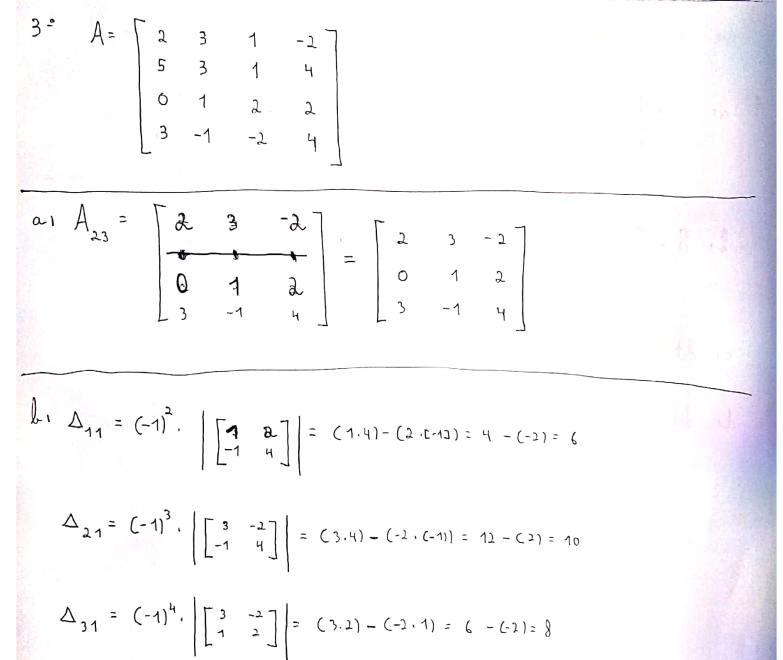 3º A = [ 2 3 1 -2
5 3 1 4
0 1 2 2
3 -1 -2 4 ]
a) A₂₃ = [ 2 3 -2
0 1 2
3 -1 4 ] = [ 2 3 -2
0 1 2
3 -1 4 ]
b) Δ₁₁ = (-1)². |[ 1 2
-1 4 ]| = (1.4) - (2.[-1]) = 4 - (-2) = 6
Δ₂₁ = (-1)³. |[ 3 -2
-1 4 ]| = (3.4) - (-2.(-1)) = 12 - (2) = 10
Δ₃₁ = (-1)⁴. |[ 3 -2
1 2 ]| = (3.2) - (-2.1) = 6 - (-2) = 8